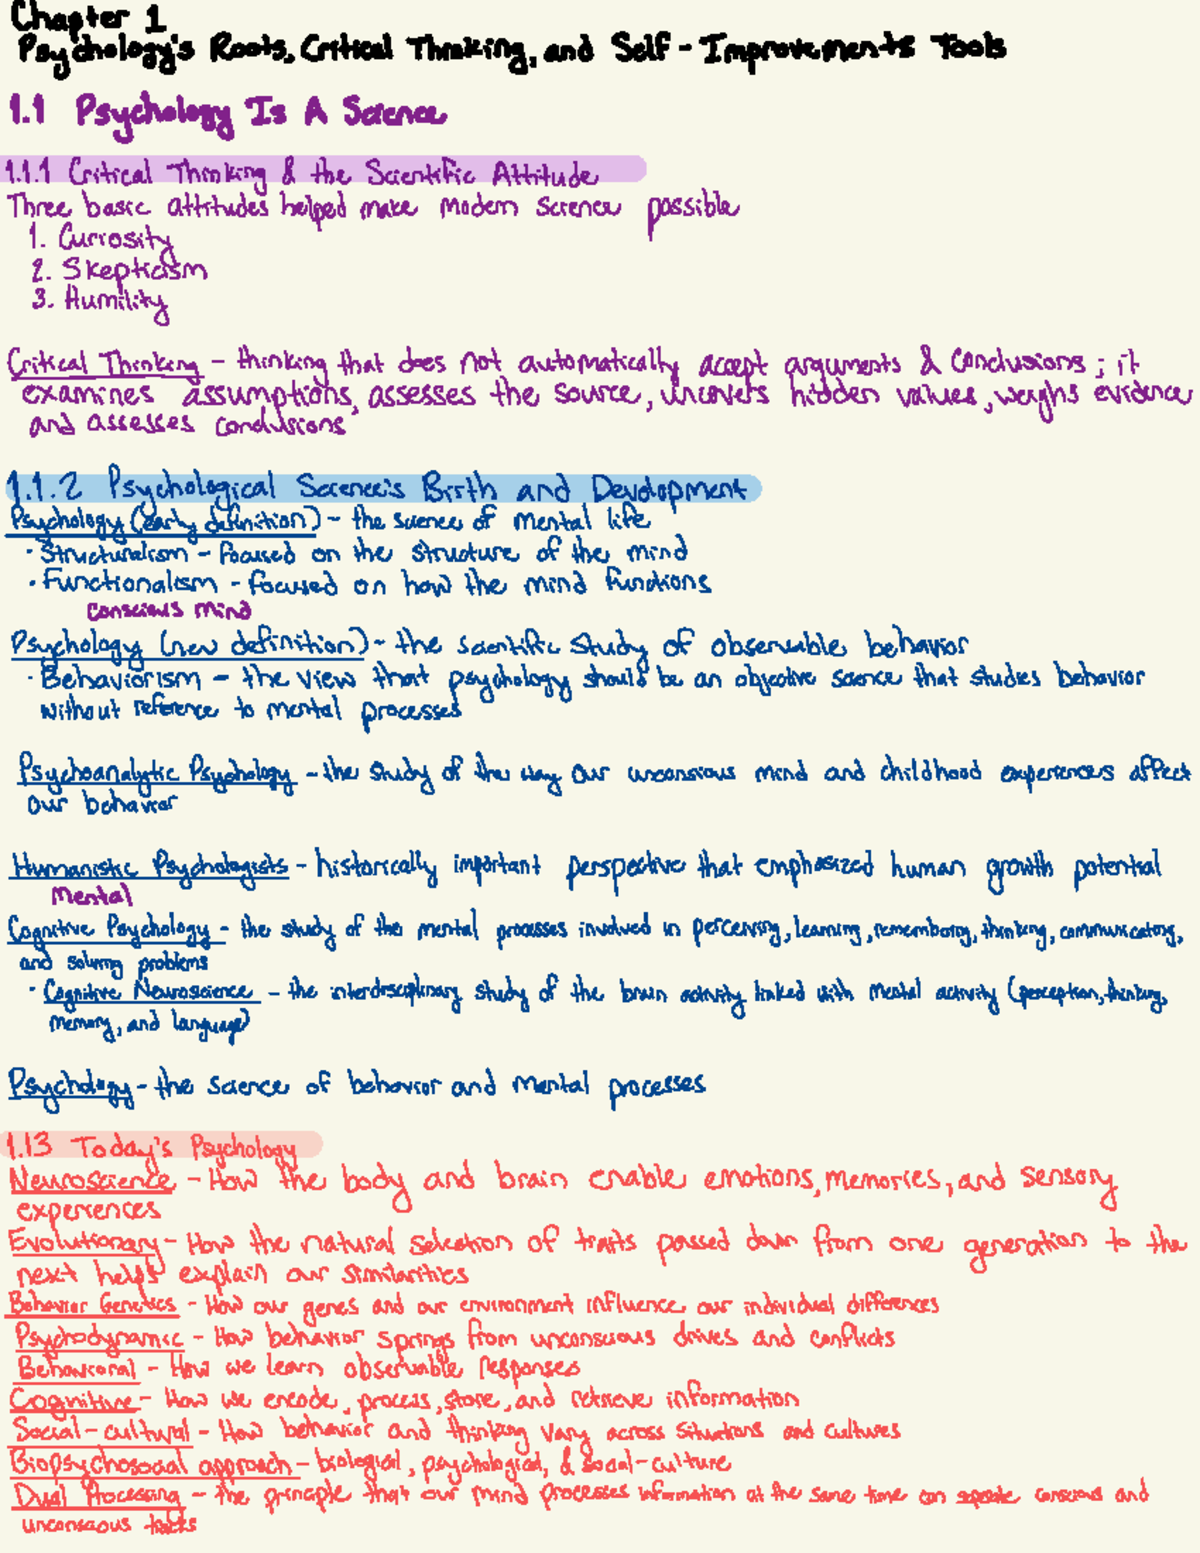 Chapter 1
Psychology's Roots, Critical Thinking, and Self-Improvements Tools
1.1 Psychology Is A Science
1.1.1 Critical Thinking & the Scientific Attitude
Three basic attitudes helped make modern science possible
1. Curiosity
2. Skepticism
3. Humility
Critical Thinking - thinking that does not automatically accept arguments & conclusions; it
examines assumptions, assesses the source, uncovers hidden values, weighs evidence
and assesses conclusions
1.1.2 Psychological Science's Birth and Development
Psychology (early definition) - the science of mental life
· Structuralism - focused on the structure of the mind
· Functionalism - focused on how the mind functions
conscious mind
Psychology (new definition) - the scientific study of observable behavior
· Behaviorism - the view that psychology should be an objective science that studies behavior
without reference to mental processes
Psychoanalytic Psychology - the study of the way our unconsious mind and childhood experiences affect
our behavior
Humanistic Psychologists - historically important perspective that emphasized human growth potential
Mental
Cognitive Psychology - the study of the mental processes involved in perceiving, learning, remembering, thinking, communicating,
and solving problems
· Cognitive Neuroscience - the interdisciplinary study of the brain activity linked with mental activity (perception, thinking,
memory, and language)
Psychology - the science of behavior and mental processes
1.13 Today's Psychology
Neuroscience - How the body and brain enable emotions, memories, and sensory
experiences
Evolutionary - How the natural selection of traits passed down from one generation to the
next helps explain our similarities
Behavior Genetics - How our genes and our environment influence our individual differences
Psychodynamic - How behavior springs from unconscious drives and conflicts
Behavioral - How we learn observable responses
Cognitive - How we encode, process, store, and retrieve information
Social-cultural - How behavior and thinking vary across situations and cultures
Biopsychosocial approach - biological, psychological, & social-culture
Dual Processing - the principle that our mind processes information at the same time on seperate conscious and
unconscious tracks